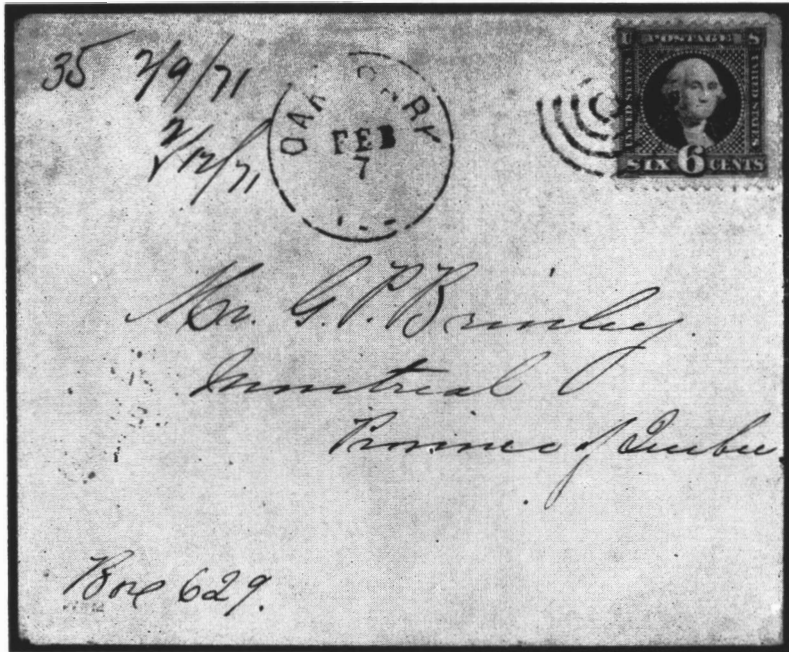 35 2/9/71
2/12/71
FEB
7
U POSTAGE S
UNITED STATES
UNITED STATES
SIX 6 CENTS
Mr. G. P. Brinley
Montreal
Province of Quebec.
Box 629.